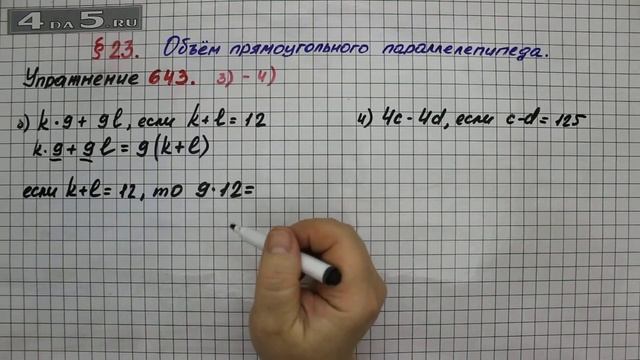 4DA5.RU
§ 23. Объём прямоугольного параллелепипеда.
Упражнение 643. 3) - 4)
3) k · 9 + 9l, если k + l = 12
k · 9 + 9l = 9(k + l)
если k + l = 12, то 9 · 12 =
4) 4c - 4d, если c - d = 125